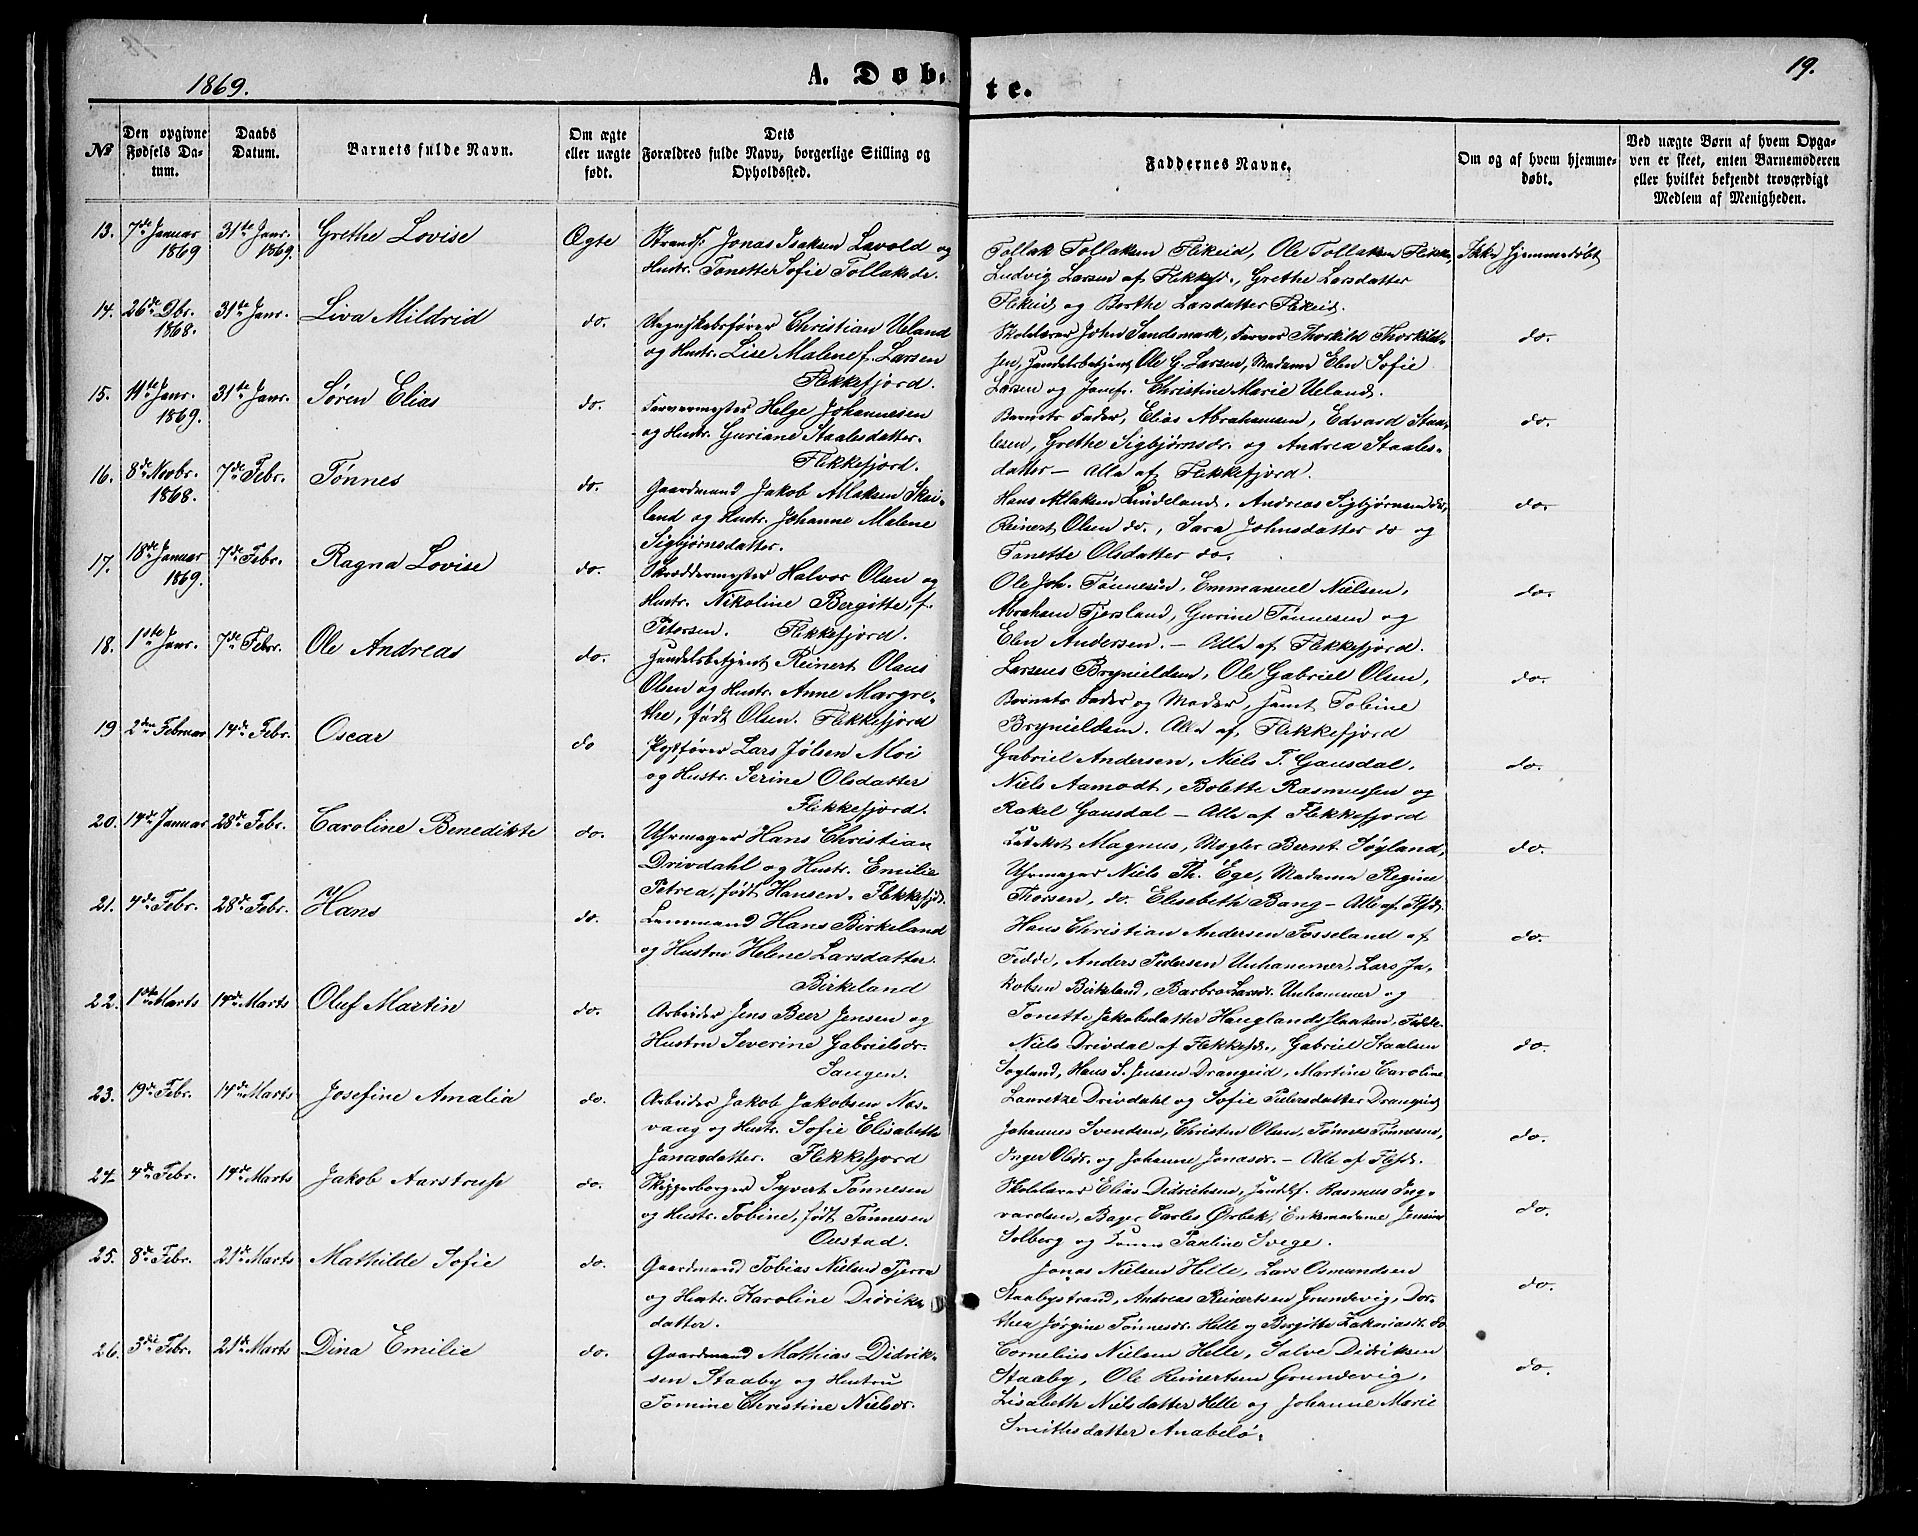 1869.
A. Døb-
te.
19.
№
Den opgivne Fødsels Da-tum.
Daabs Datum.
Barnets fulde Navn.
Om ægte eller uægte født.
Dets Forældres fulde Navn, borgerlige Stilling og Opholdssted.
Faddernes Navne.
Om og af hvem hjemme-døbt.
Ved uægte Børn af hvem Opga-ven er skeet, enten Barnemoderen eller hvilket bekjendt troværdigt Medlem af Menigheden.
13. 7de Januar 1869 31te Janr. 1869. Grethe Lovise Ægte
Strands. Jonas Isaksen Lavold og
Hustr. Tonette Sofie Tollaksdr.
Tollak Tollaksen Flikeid, Ole Tollaksen
Ludvig Larsen af Flekkefj., Grethe Larsdatter
Flikeid og Berthe Larsdatter Flikeid.
Ikke hjemmedøbt
14. 26de Dbr. 1868. 31te Janr. Liva Mildrid do.
Regnskabsfører Christian Ueland
og Hustr. Lise Malene f. Larsen
Flekkefjord.
Skolelærer John Sandemark, Farver Thorkild Thorkild-
sen, Handelsbetjent Ole G. Larsen, Madame Elen Sofie
Larsen og Jomfr. Christine Marie Ueland.
do.
15. 11te Janr. 1869. 31te Janr. Søren Elias do.
Farvermester Helge Johannesen
og Hustr. Guriane Staalesdatter.
Flekkefjord.
Barnets Fader, Elias Abrahamsen, Edvard Staa-
lesen, Grethe Sigbjørnsdr. og Andrea Staales-
datter – Alle af Flekkefjord.
do.
16. 8de Novbr. 1868. 7de Febr. Tønnes do.
Gaardmand Jakob Atlaksen Skei-
land og Hustr. Johanne Malene
Sigbjørnsdatter.
Hans Atlaksen Lindeland, Andreas Sigbjørnsen do,
Reinert Olsen do., Sara Johnsdatter do og
Tonette Olsdatter do.
do.
17. 18de Januar 1869. 7de Febr. Ragna Lovise do.
Skræddermester Halvor Olsen og
Hustr. Nikoline Bergitte, f.
Petersen. Flekkefjord.
Ole Joh. Tønnesen, Emmanuel Nielsen,
Abraham Fjersland, Gurine Tønnesen og
Elen Andersen. – Alle af Flekkefjord.
do.
18. 1ste Janr. 7de Febr. Ole Andreas do.
Handelsbetjent Reinert Olaus
Olsen og Hustr. Anne Margre-
the, født Olsen. Flekkefjord
Larsens Brynildsen, Ole Gabriel Olsen,
Barnets Fader og Moder, samt Tobine
Brynildsen. Alle af Flekkefjord
do.
19 2den Februar 14de Febr. Oscar do
Postfører Lars Jølsen Moi
og Hustr. Serine Olsdatter
Flekkefjord.
Gabriel Andersen, Niels T. Gausdal,
Niels Aamodt, Bolette Rasmussen og
Rakel Gausdal – Alle af Flekkefjord
do.
20. 14de Januar 28de Febr. Caroline Benedikte do.
Uhrmager Hans Christian
Drivdahl og Hustr. Emilie
Petrea, født Hansen. Flekkefjd.
Magnus, Mægler Bernt Søyland,
Uhrmager Niels Th. Ege, Madame Regine
Thorsen, do. Elisabeth Bang – Alle af Flfd.
do.
21. 4de Febr. 28de Febr. Hans do.
Lensmand Hans Birkeland
og Hustru Helene Larsdatter.
Birkeland
Hans Christian Andersen Fosseland af
Fedde, Anders Pedersen Unhammer, Lars Ja-
kobsen Birkeland, Barbro Larsdr. Unhammer og
Tonette Jakobsdatter Hauglandsslaaten, Fedde.
do.
22. 1ste Marts 14de Marts Oluf Martin do.
Arbeider Jens Beer Jensen og
Hustru Severine Gabrielsdr.
Saugen.
Niels Drivdal af Flekkefd., Gabriel Staalsen
Søyland, Hans S. Jensen Drangeid, Martine Caroline
Lauretze Drivdahl og Sofie Pedersdatter Drangeid
do.
23. 19de Febr. 14de Marts Josefine Amalia do.
Arbeider Jakob Jakobsen Nos-
vaag og Hustr. Sofie Elisabeth
Jonasdatter. Flekkefjord
Johannes Svendsen, Christen Olsen, Tønnes Tønnesen,
Inger Olsdr. og Johanne Jonasdr. – Alle af Flfd.
do.
24. 4de Febr. 14de Marts Jakob Aarstrup do.
Skipperborger Syvert Tønnesen
og Hustr. Tobine, født Tønnesen
Ouestad.
Skolelærer Elias Didrichsen, Handelsf. Rasmus Ing-
vardsen, Bager Carles Ørbek, Enkemadame Jensine
Solberg og Pauline Svege.
do.
25. 8de Febr. 21de Marts Mathilde Sofie do.
Gaardmand Tobias Nielsen Tjerra
og Hustr. Karoline Didriks-
datter.
Jonas Nielsen Helle, Lars Osmundsen
Staabystrand, Andreas Reinertsen Grundevig, Dor-
thea Jørgine Tønnesdr. Helle og Bergitte Zakariasdr. do
do.
26. 3die Febr. 21de Marts Dina Emilie do.
Gaardmand Mathias Didrik-
sen Staaby og Hustru
Tomine Christine Nielsdr.
Cornelius Nielsen Helle, Salve Didriksen
Staaby, Ole Reinertsen Grundevig,
Lisabeth Nielsdatter Helle og Johanne Marie
Smithsdatter Anabelø.
do.